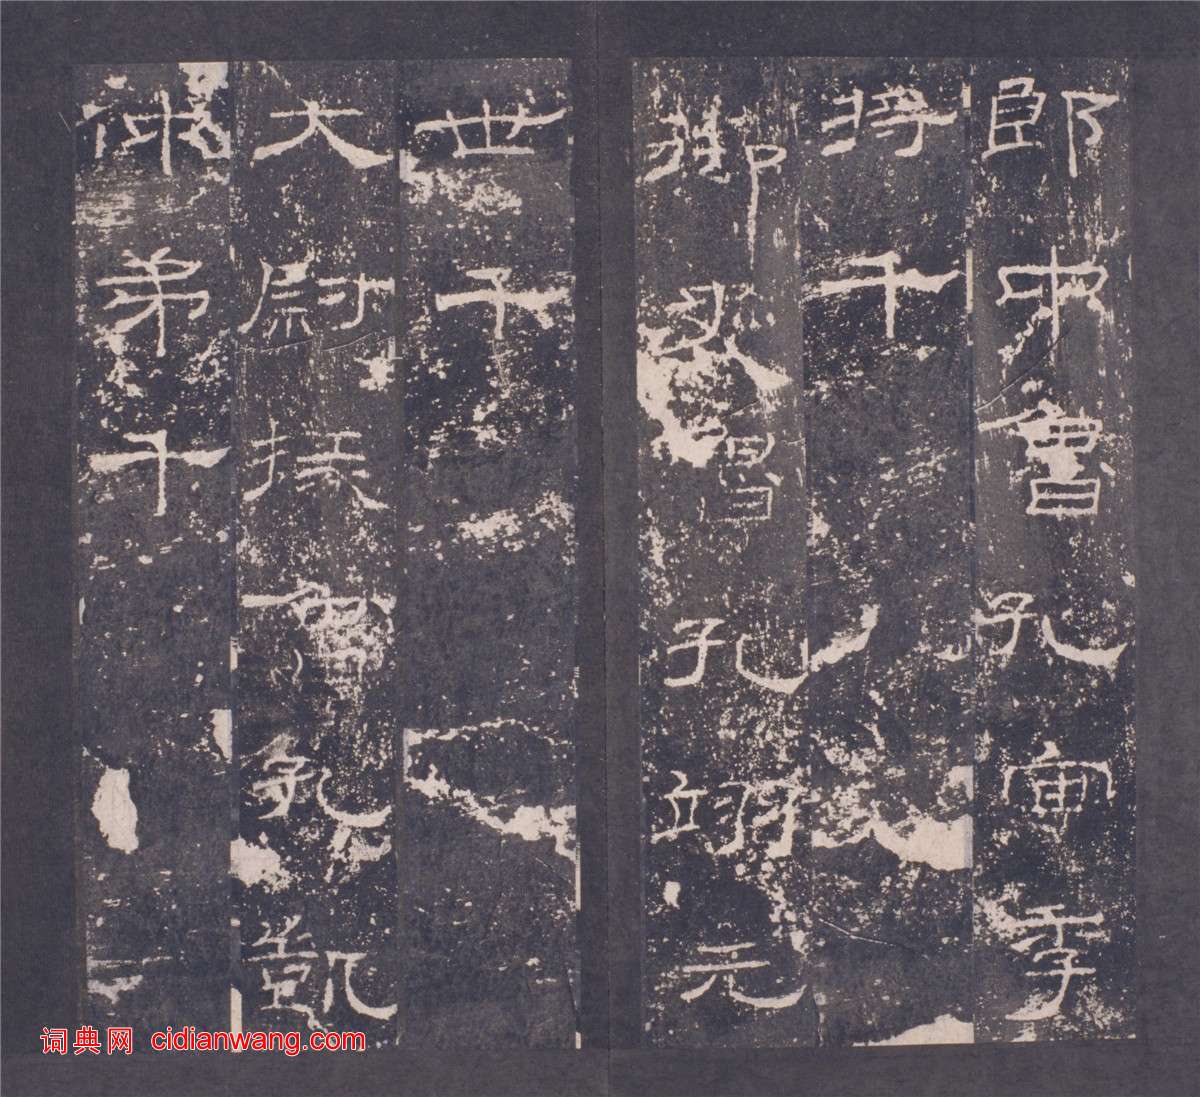 郎中魯孔宙季
将千
御史魯孔翊元
世千
大尉掾魯孔凱
仲弟千
词典网 cidianwang.com